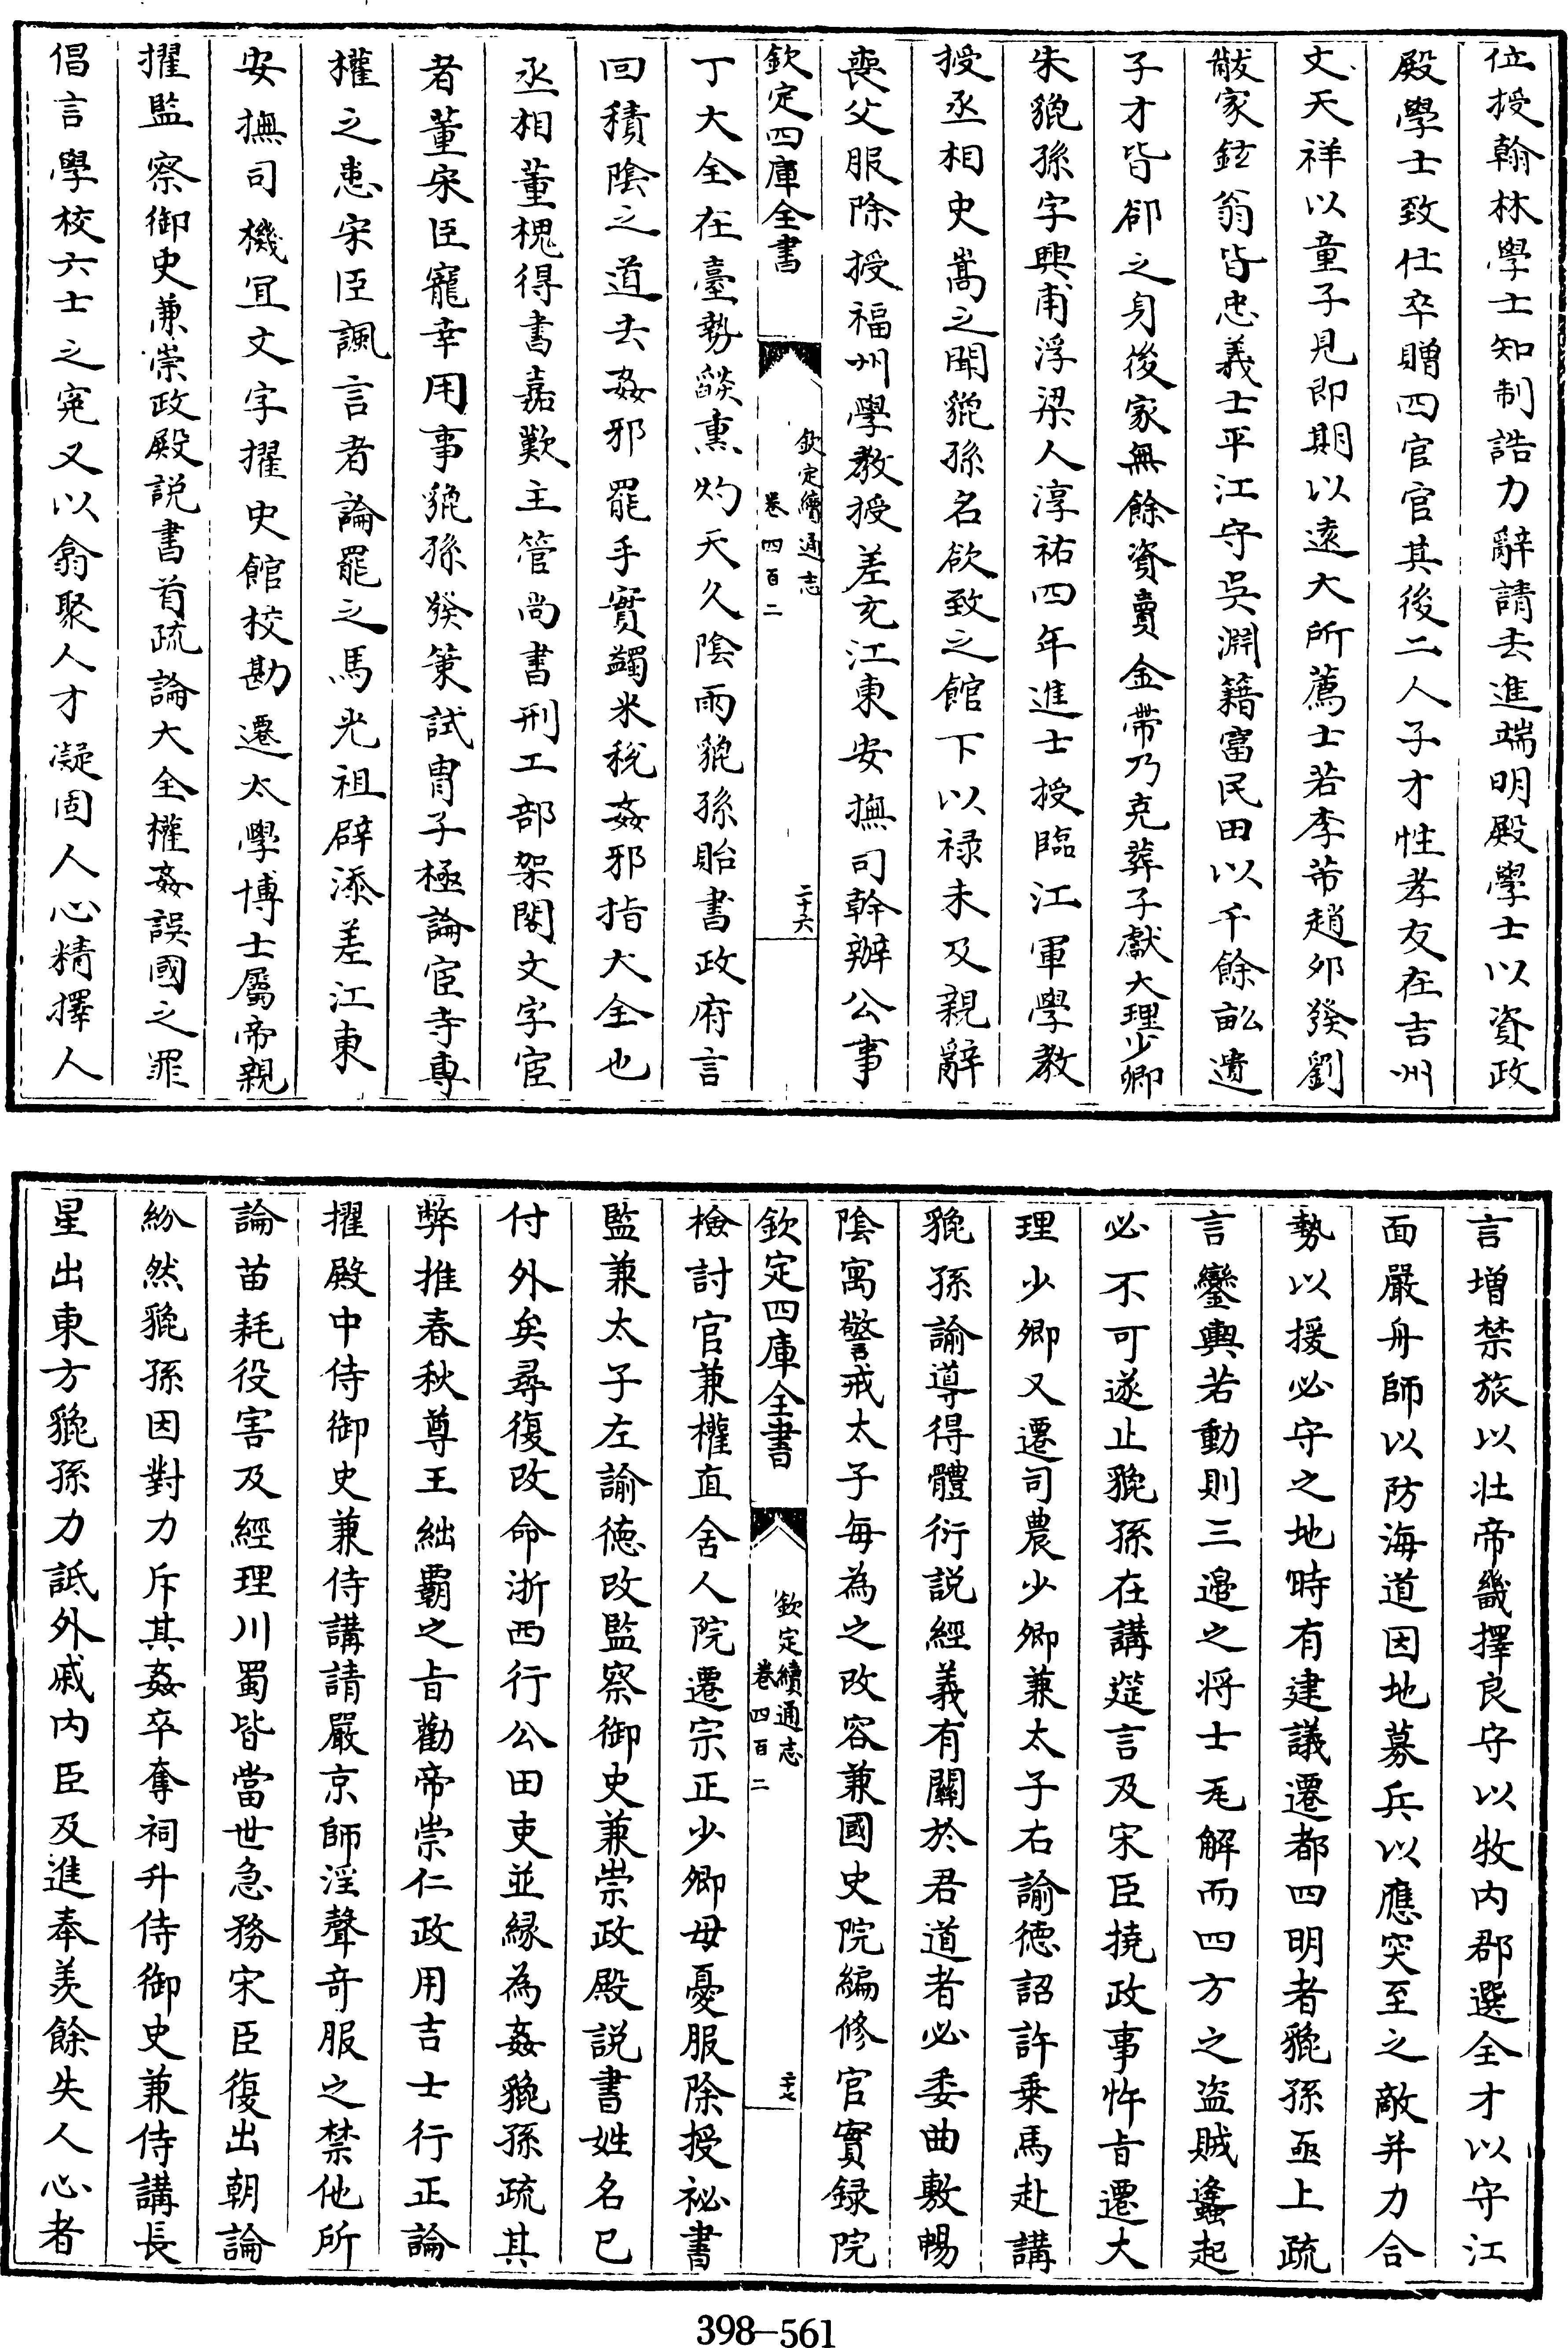 位授翰林學士知制誥力辭請去進端明殿學士以資政
殿學士致仕卒贈四官官其後二人子才性孝友在吉州
文天祥以童子見即期以遠大所薦士若李芾趙卯發劉
黻家鉉翁皆忠義士平江守吳淵籍富民田以千餘畝遺
子才皆卻之身後家無餘資賣金帶乃克葬子獻大理少卿
朱貔孫字興甫浮梁人淳祐四年進士授臨江軍學教
授丞相史嵩之聞貔孫名欲致之館下以祿未及親辭
喪父服除授福州學教授差充江東安撫司幹辦公事
欽定四庫全書
欽定續通志
卷四百二
二十六
丁大全在臺勢燄熏灼天久陰雨貔孫貽書政府言
回積陰之道去姦邪罷手實蠲米稅姦邪指大全也
丞相董槐得書嘉歎主管尚書刑工部架閣文字宦
者董宋臣寵幸用事貔孫發策試胄子極論宦寺專
權之患宋臣諷言者論罷之馬光祖辟添差江東
安撫司機宜文字擢史館校勘遷太學博士屬帝親
擢監察御史兼崇政殿説書首疏論大全權姦誤國之罪
倡言學校六士之寃又以翕聚人才凝固人心精擇人
言增禁旅以壯帝畿擇良守以牧内郡選全才以守江
面嚴舟師以防海道因地募兵以應突至之敵并力合
勢以援必守之地時有建議遷都四明者貔孫亟上疏
言鑾輿若動則三邉之将士瓦解而四方之盜賊蠭起
必不可遂止貔孫在講筵言及宋臣撓政事忤旨遷大
理少卿又遷司農少卿兼太子右諭徳詔許乗馬赴講
貔孫諭導得體衍説經義有關於君道者必委曲敷暢
陰寓警戒太子每為之改容兼國史院編修官實録院
欽定四庫全書
欽定續通志
卷四百二
二十七
檢討官兼權直舍人院遷宗正少卿母憂服除授祕書
監兼太子左諭徳改監察御史兼崇政殿説書姓名已
付外矣尋復改命浙西行公田吏並緣為姦貔孫疏其
弊推春秋尊王絀霸之旨勸帝崇仁政用吉士行正論
擢殿中侍御史兼侍講請嚴京師淫聲奇服之禁他所
論苗耗役害及經理川蜀皆當世急務宋臣復出朝論
紛然貔孫因對力斥其姦卒奪祠升侍御史兼侍講長
星出東方貔孫力詆外戚内臣及進奉羨餘失人心者
398-561